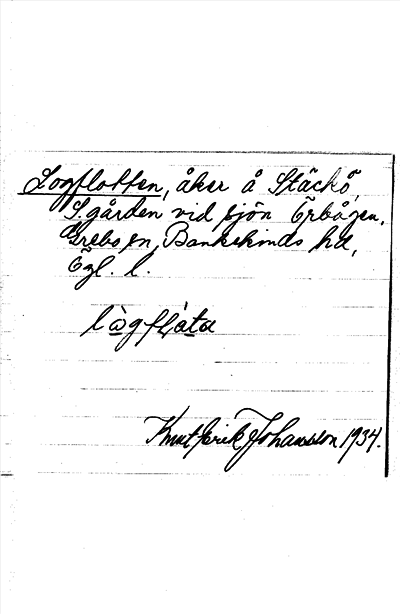 Logflotten, åker å Stäckö,
S. gården vid sjön Örbågen,
Grebo sn, Bankekinds hd,
Ögl. l.
Knut Erik Johansson 1934.